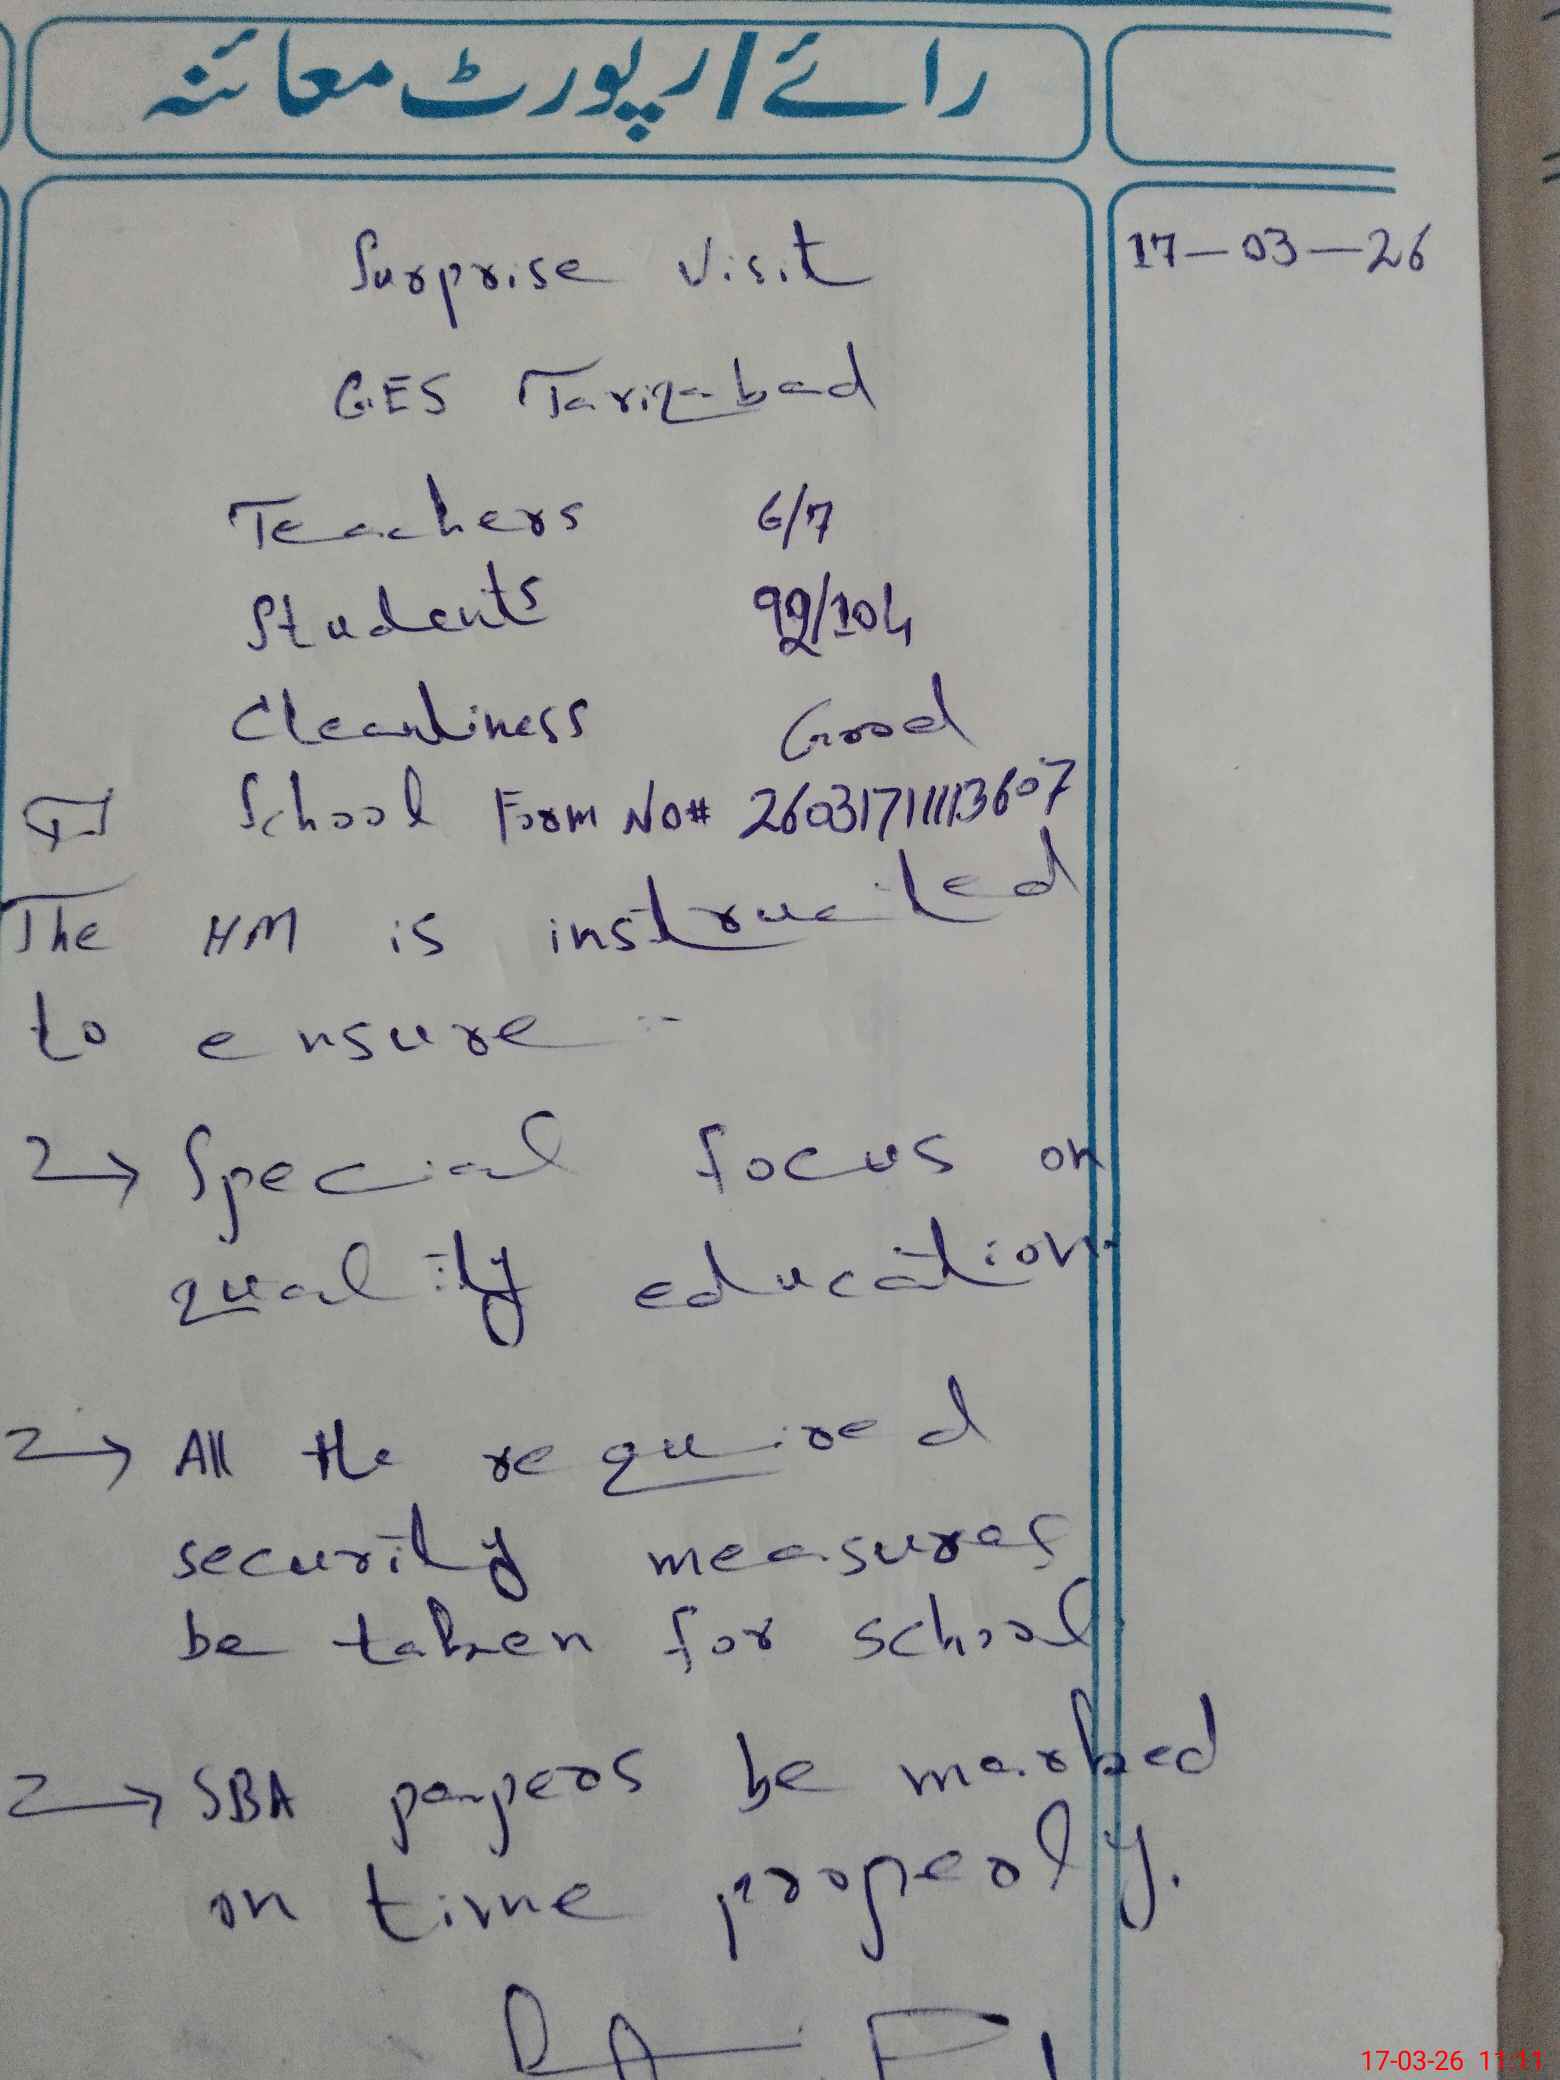 رائے/رپورٹ معائنہ
17-03-26
Surprise Visit
GES Tariqabad
Teachers 6/7
Students 99/104
Cleanliness Good
School Form No# 2603171113607
The HM is instructed
to ensure :-
→ Special focus on
quality education.
→ All the required
security measures
be taken for school.
→ SBA papers be marked
on time properly.
17-03-26 11:11